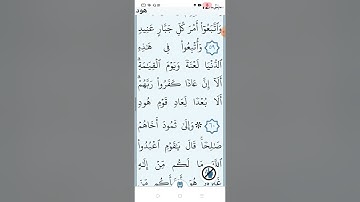 هود
وَٱتَّبَعُوٓاْ أَمۡرَ كُلِّ جَبَّارٍ عَنِيدٖ
٥٩ وَأُتۡبِعُواْ فِي هَٰذِهِ
ٱلدُّنۡيَا لَعۡنَةٗ وَيَوۡمَ ٱلۡقِيَٰمَةِۗ
أَلَآ إِنَّ عَادٗا كَفَرُواْ رَبَّهُمۡۗ
أَلَا بُعۡدٗا لِّعَادٖ قَوۡمِ هُودٖ
٦٠ ۞ وَإِلَىٰ ثَمُودَ أَخَاهُمۡ
صَٰلِحٗاۚ قَالَ يَٰقَوۡمِ ٱعۡبُدُواْ
ٱللَّهَ مَا لَكُم مِّنۡ إِلَٰهٍ
غَيۡرُهُۥۖ هُوَ أَنشَأَكُم مِّنَ